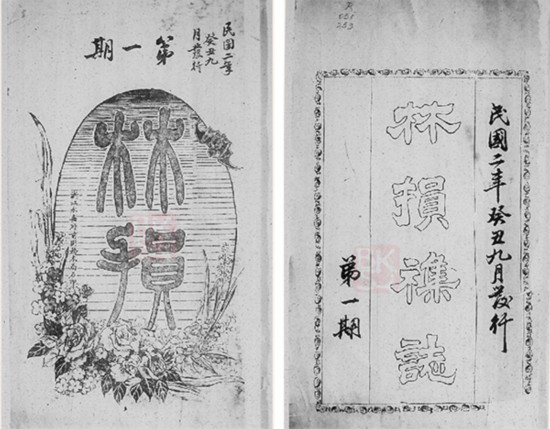 民國二年
癸丑九
月發行
第一期
林損
R
民國二年癸丑九月發行
林損襍誌
第一期